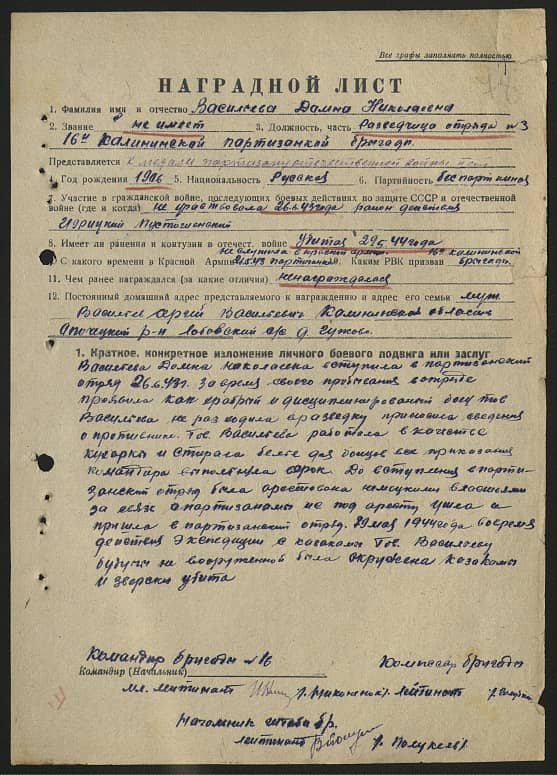 Все графы заполнять полностью
НАГРАДНОЙ ЛИСТ
1. Фамилия имя и отчество Васильева Домна Николаевна
2. Звание не имеет 3. Должность, часть Разведчица отряда №3
16й Калининской партизанкой бригады.
Представляется К медали партизану отечественной войны
4. Год рождения 1906 5. Национальность Русская 6. Партийность беспартийная
7. Участие в гражданской войне, последующих боевых действиях по защите СССР и отечественной
войне (где и когда) не участвовала 26.6.43 года район действия
Идрицкий Пустошенский
8. Имеет ли ранения и контузии в отечест. войне убитая 29.5.44 года
С какого времени в Красной Армии партизанка Каким РВК призван 16й калининской бригады
11. Чем ранее награждался (за какие отличия) ненаграждалась
12. Постоянный домашний адрес представляемого к награждению и адрес его семьи муж
Васильев Васильевич Калининская область
Опочецкий р-н с/с д.
1. Краткое, конкретное изложение личного боевого подвига или заслуг
Васильева Домна Николаевна вступила в партизанский
отряд 26.6.43г. за время своего пребывания в отряде
проявила как храбрый и дисциплинированый боец тов
Васильева не раз ходила в разведку приносила сведения
о противнике. Тов. Васильева работала в качестве
кухарки и стирала белье для бойцов все приказания
командира выполняла в срок. До вступления в парти-
занский отряд была арестована немецкими властями
за связь с партизанами из под ареста ушла и
пришла в партизанский отряд. 29 мая 1944 года вовремя
действия экспедиции с казаками Тов. Васильеву
будучи не вооруженной была окружена казаками
и зверски убита
Командир бригады №16 Комиссар бригады
Командир (Начальник)
мл. лейтинант лейтинант
Начальник штаба бр.
лейтинант